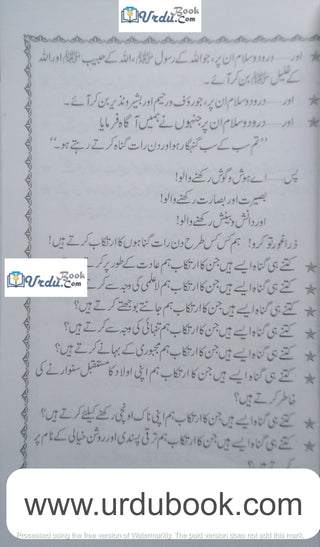 UrduBook.com
اور ..... درود و سلام ان پر، جو اللہ کے رسول ﷺ، اللہ کے حبیب ﷺ اور اللہ
کے خلیل ﷺ بن کر آئے۔
اور ..... درود و سلام ان پر، جو رؤف و رحیم اور بشیر و نذیر بن کر آئے۔
اور ..... درود و سلام ان پر جنہوں نے ہمیں آگاہ فرمایا
"تم سب کے سب گنہگار ہو اور دن رات گناہ کرتے رہتے ہو۔"
پس ..... اے ہوش و گوش رکھنے والو!
بصیرت اور بصارت رکھنے والو!
اور دانش و بینش رکھنے والو!
ذرا غور تو کرو! ہم کس کس طرح دن رات گناہوں کا ارتکاب کرتے ہیں!
کتنے ہی گناہ ایسے ہیں جن کا ارتکاب ہم عادت کے طور پر کرتے
UrduBook.com
کتنے ہی گناہ ایسے ہیں جن کا ارتکاب ہم لاعلمی کی وجہ سے کرتے
کتنے ہی گناہ ایسے ہیں جن کا ارتکاب ہم جانتے بوجھتے کرتے ہیں؟
کتنے ہی گناہ ایسے ہیں جن کا ارتکاب ہم تنہائی کی وجہ سے کرتے ہیں؟
کتنے ہی گناہ ایسے ہیں جن کا ارتکاب ہم مجبوری کے بہانے کرتے ہیں؟
کتنے ہی گناہ ایسے ہیں جن کا ارتکاب ہم اپنی اولاد کا مستقبل سنوارنے کی
خاطر کرتے ہیں؟
کتنے ہی گناہ ایسے ہیں جن کا ارتکاب ہم اپنی ناک اونچی رکھنے کیلئے کرتے ہیں؟
کتنے ہی گناہ ایسے ہیں جن کا ارتکاب ہم ترقی پسندی اور روشن خیالی کے نام پر
www.urdubook.com
Processed using the free version of Watermarkly. The paid version does not add this mark.